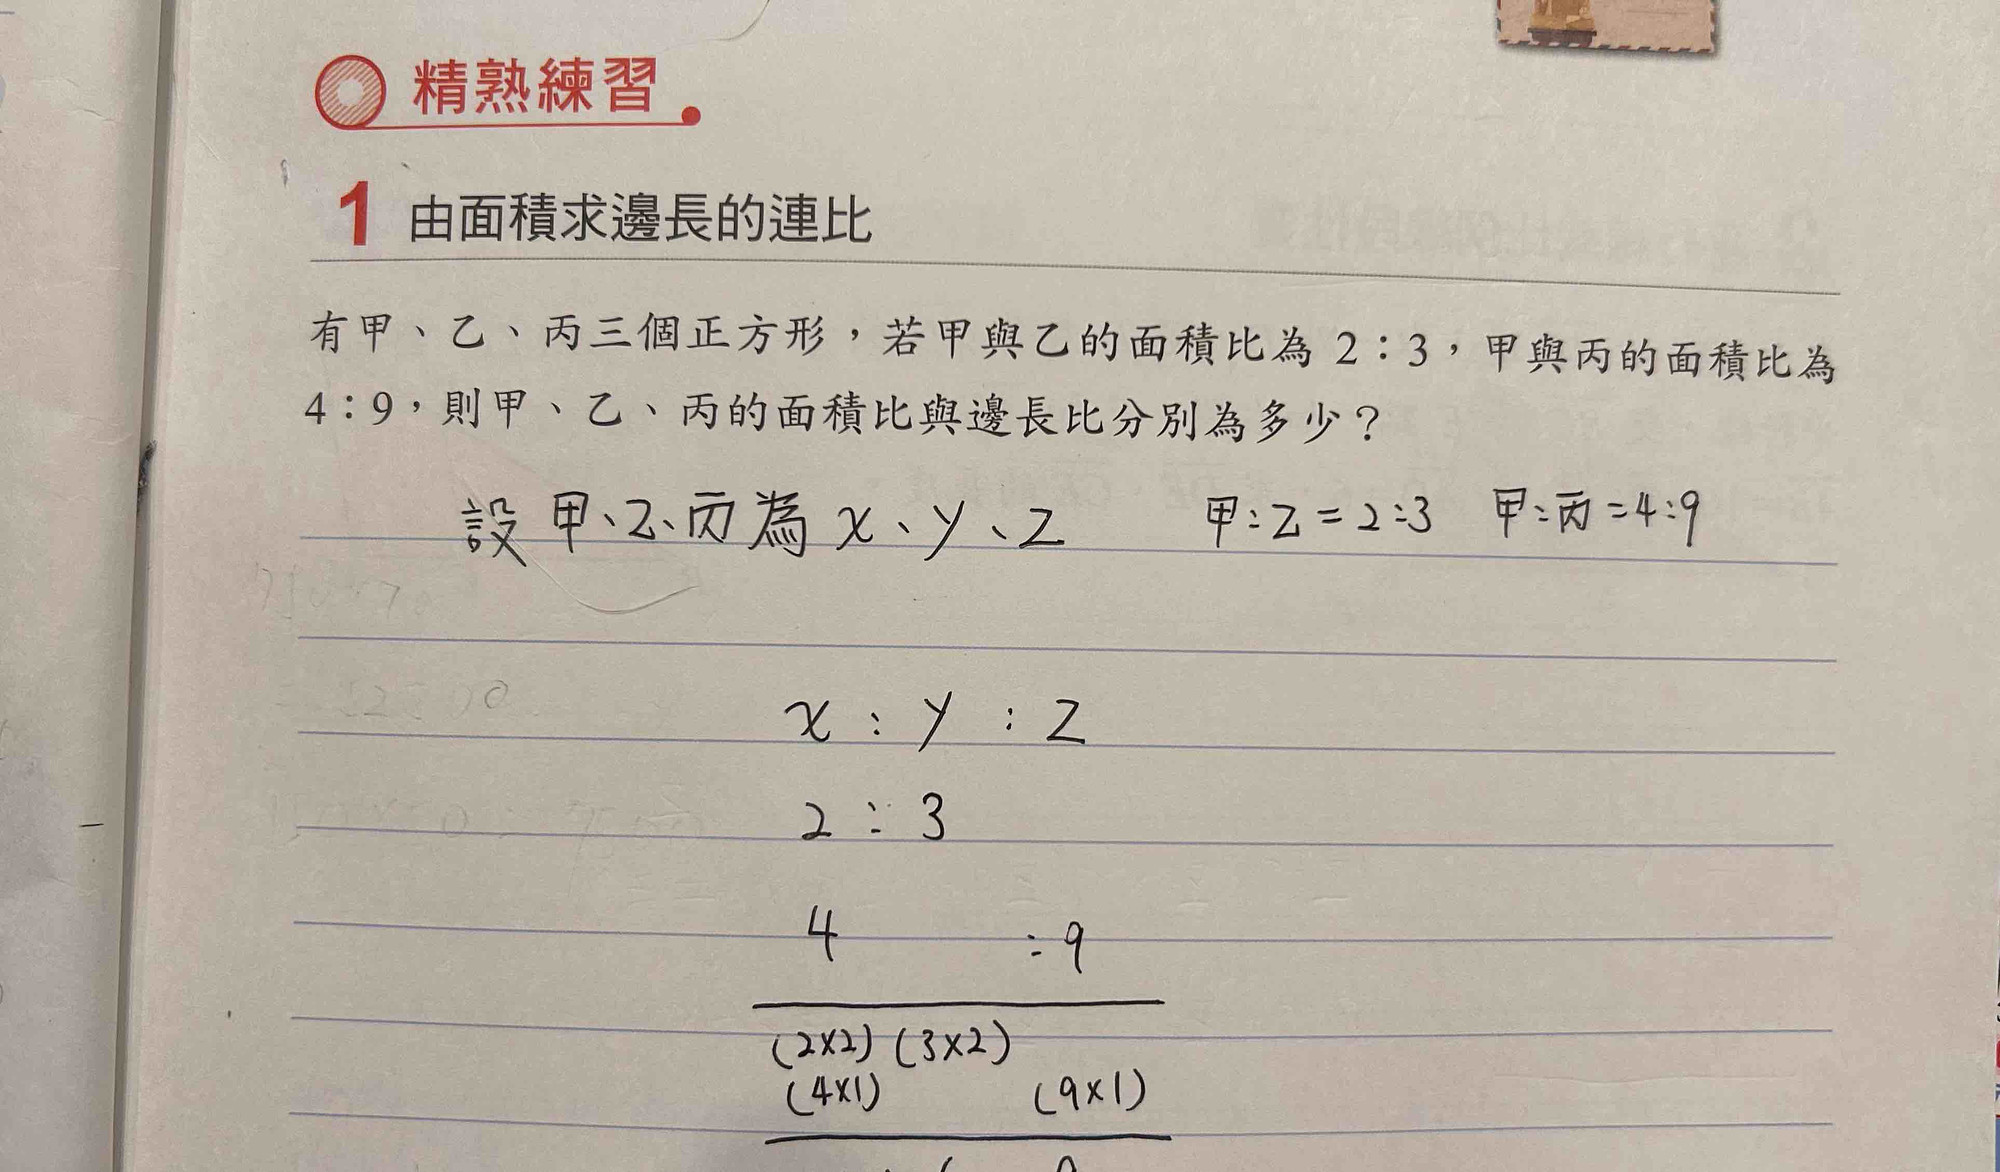 精熟練習
1 由面積求邊長的連比
有甲、乙、丙三個正方形，若甲與乙的面積比為 2：3，甲與丙的面積比為
4：9，則甲、乙、丙的面積比與邊長比分別為多少？
設甲、乙、丙為 x、y、z 甲:乙=2:3 甲:丙=4:9
x : y : z
2 : 3
4 : 9
(2×2) (3×2)
(4×1) (9×1)